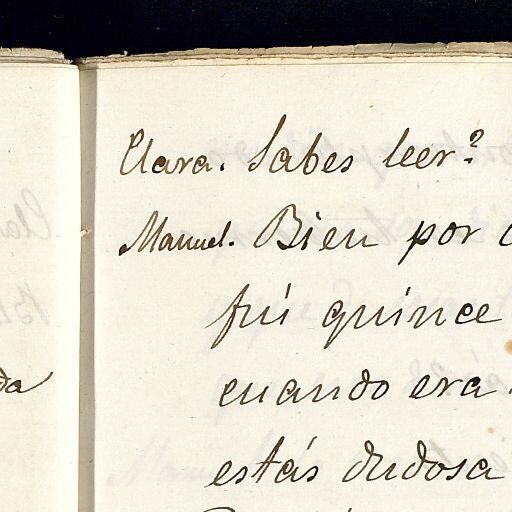 Clara. Sabes leer?
Manuel. Bien por
fuí quince
cuando era
estás dudosa